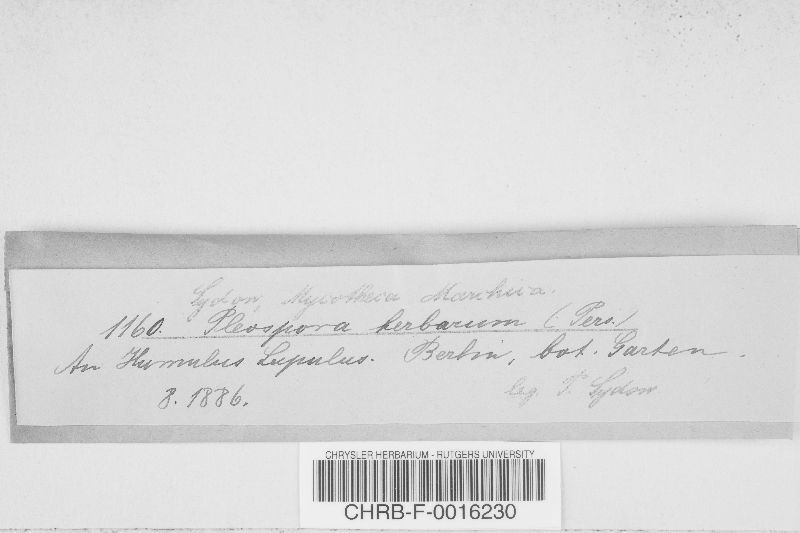 Sydow, Mycotheca Marchica.
1160. Pleospora herbarum (Pers.)
An Humulus Lupulus. Berlin, bot. Garten.
8. 1886.
leg. P. Sydow
CHRYSLER HERBARIUM - RUTGERS UNIVERSITY
CHRB-F-0016230